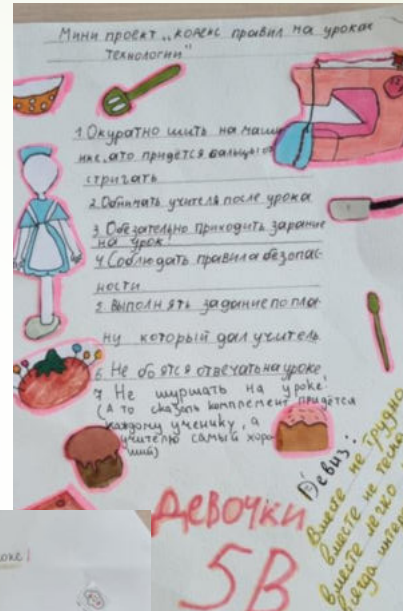 Мини проект „кодекс правил на уроках
технологии"
1. Окуратно шить на маши
нке, ато придётся пальцы от
стригать
2. Обнимать учителя после урока
3. Обезательно приходить зарание
на урок
4. Соблюдать правила безопас-
ности
5. выполнять задание по пла-
ну который дал учитель
6. Не боятся отвечать на уроке
7. Не шуршать на уроке.
(А то сказать комплемент придётся
каждому ученику, а
учителю самый хоро
ший)
Девиз:
Вместе не трудно
вместе не тесно
вместе легко
ДЕВОЧКИ
5В